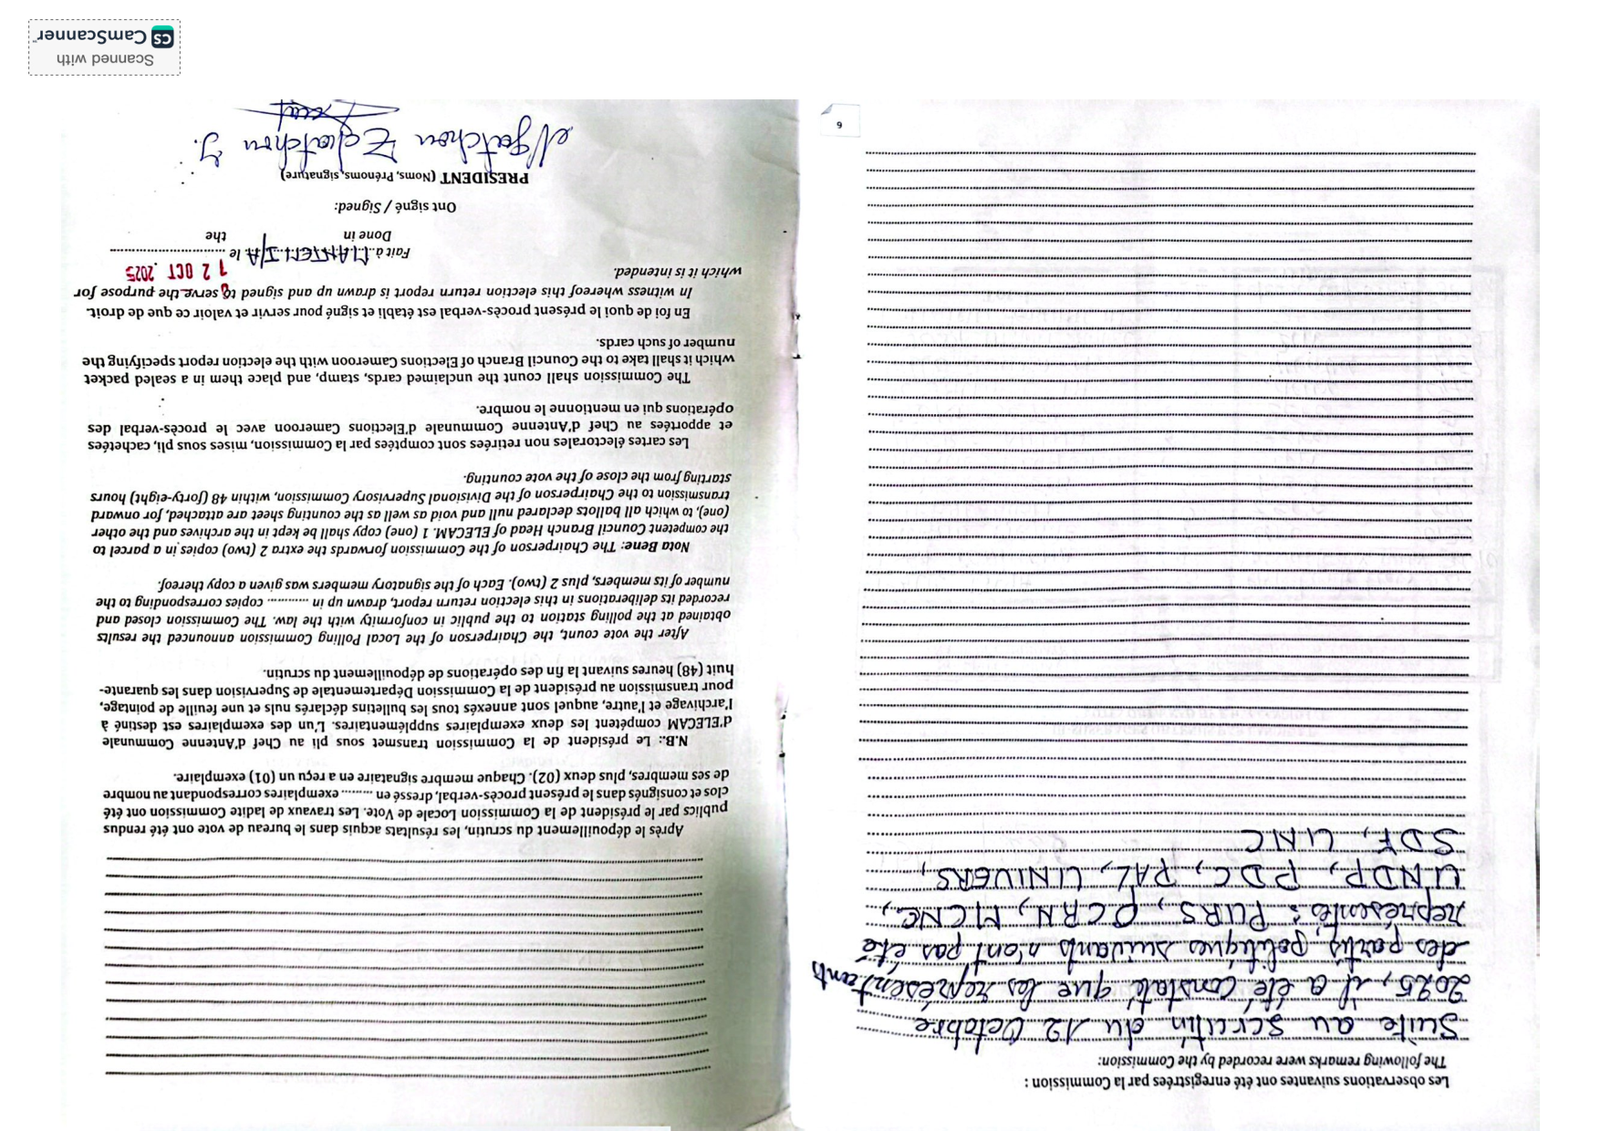 Les observations suivantes ont été enregistrées par la Commission :
The following remarks were recorded by the Commission:
Suite au scrutin du 12 Octobre
2025, il a été constaté que les représentants
des partis politiques suivants n'ont pas été
représentés : PURS, PCRN, MCNC,
UNDP, PDC, PAL, UNIVERS,
SDF, UNC
6
Après le dépouillement du scrutin, les résultats acquis dans le bureau de vote ont été rendus
publics par le président de la Commission Locale de Vote. Les travaux de ladite Commission ont été
clos et consignés dans le présent procès-verbal, dressé en ......... exemplaires correspondant au nombre
de ses membres, plus deux (02). Chaque membre signataire en a reçu un (01) exemplaire.
N.B.: Le président de la Commission transmet sous pli au Chef d'Antenne Communale
d'ELECAM compétent les deux exemplaires supplémentaires. L'un des exemplaires est destiné à
l'archivage et l'autre, auquel sont annexés tous les bulletins déclarés nuls et une feuille de pointage,
pour transmission au président de la Commission Départementale de Supervision dans les quarante-
huit (48) heures suivant la fin des opérations de dépouillement du scrutin.
After the vote count, the Chairperson of the Local Polling Commission announced the results
obtained at the polling station to the public in conformity with the law. The Commission closed and
recorded its deliberations in this election return report, drawn up in ............ copies corresponding to the
number of its members, plus 2 (two). Each of the signatory members was given a copy thereof.
Nota Bene: The Chairperson of the Commission forwards the extra 2 (two) copies in a parcel to
the competent Council Branch Head of ELECAM. 1 (one) copy shall be kept in the archives and the other
(one), to which all ballots declared null and void as well as the counting sheet are attached, for onward
transmission to the Chairperson of the Divisional Supervisory Commission, within 48 (forty-eight) hours
starting from the close of the vote counting.
Les cartes électorales non retirées sont comptées par la Commission, mises sous pli, cachetées
et apportées au Chef d'Antenne Communale d'Elections Cameroon avec le procès-verbal des
opérations qui en mentionne le nombre.
The Commission shall count the unclaimed cards, stamp, and place them in a sealed packet
which it shall take to the Council Branch of Elections Cameroon with the election report specifying the
number of such cards.
En foi de quoi le présent procès-verbal est établi et signé pour servir et valoir ce que de droit.
In witness whereof this election return report is drawn up and signed to serve the purpose for
which it is intended.
Fait à MANTEM I/A le 12 OCT 2025
Done in the
Ont signé / Signed:
PRESIDENT (Noms, Prénoms, signature)
Scanned with
CS CamScanner